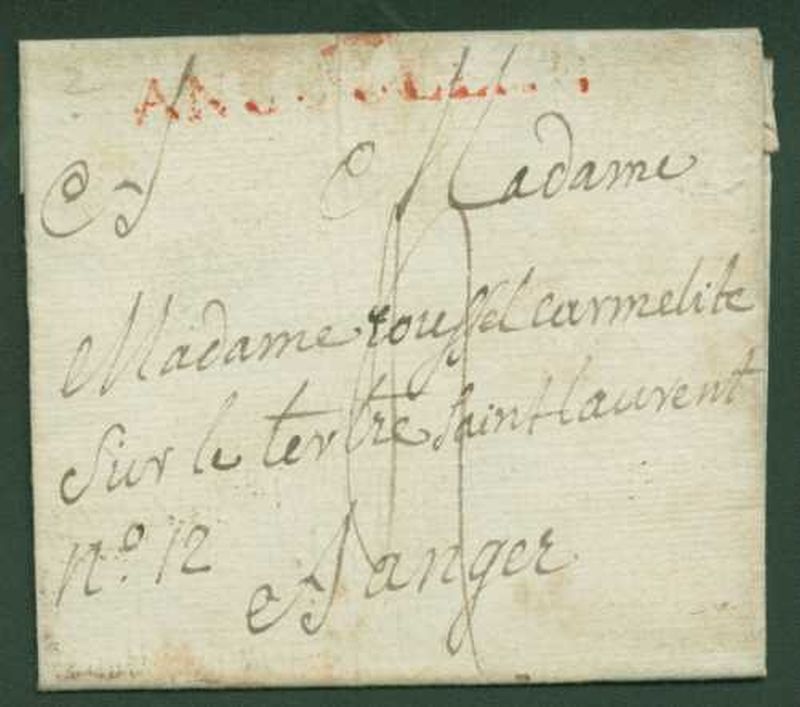 A Madame
Madame roussel carmelite
Sur le tertre saint laurent
n.º 12
A anger